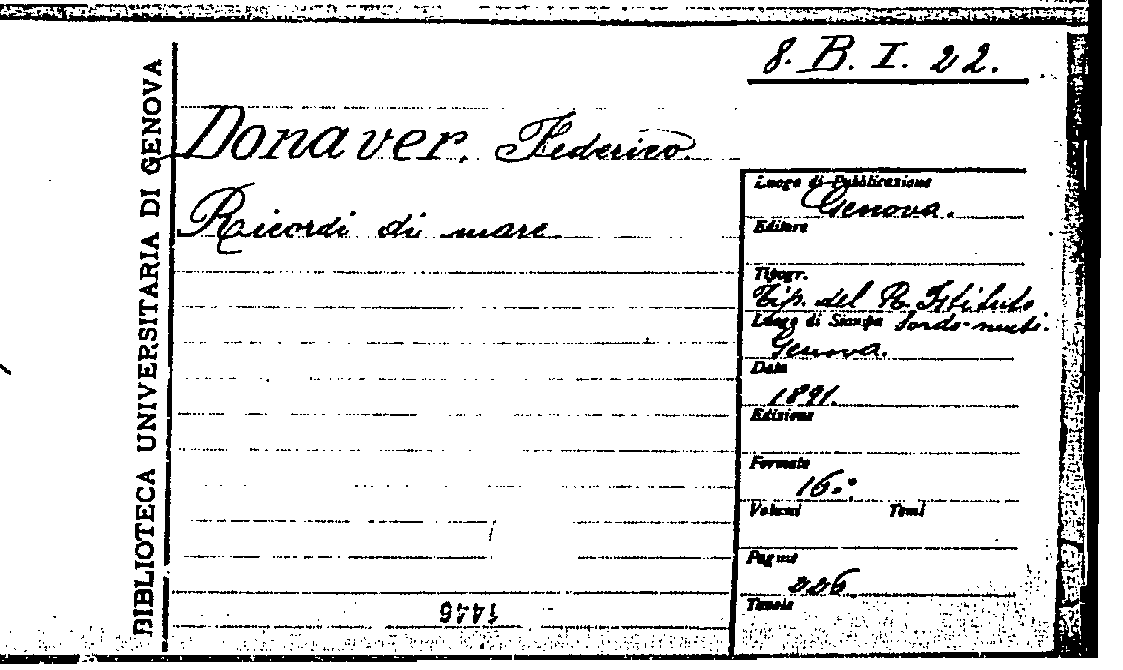 8. B. I. 22.
BIBLIOTECA UNIVERSITARIA DI GENOVA
Donaver. Federico
Ricordi di mare
Luogo di Pubblicazione
Genova.
Editore
Tipogr.
Tip. del R. Istituto
sordo-muti.
Luogo di Stampa
Genova.
Data
1891.
Edizione
Formato
16.°
Volumi Tomi
Pagine
226
Tavole